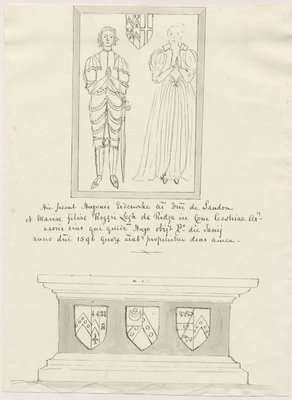 Hic Jacent Hugonis Erdeswike ar̄ Dn̄i de Sandon
et Mariae filiae Rogeri Legh de Ridge in Com Cestriae Ar-
uxoris eius que quidē Hugo obijt die Janij
anno dn̄i 1596 propicietur deus amen.